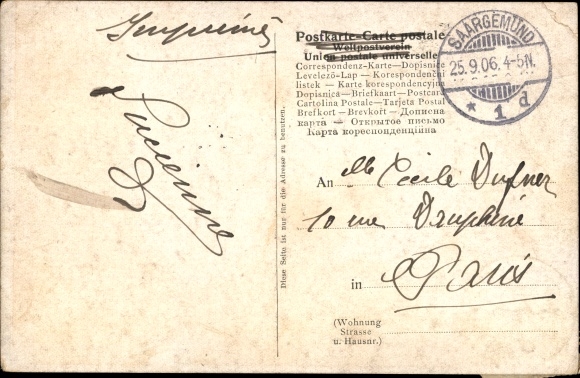 Imprimés
Lucienne
Postkarte-Carte postale
Weltpostverein
Union postale universelle
Correspondenz-Karte—Dopisnice
Levelező-Lap — Korespondenční
listek — Karte korespondencyjna
Dopisnica—Briefkaart—Postcard
Cartolina Postale—Tarjeta Postal
Brefkort—Brevkort—Дописна
карта — Открытое письмо
Карта кореспонденційна
SAARGEMÜND
25.9.06. 4-5N.
* 1 d
Diese Seite ist nur für die Adresse zu benutzen.
An Mlle Cécile Dufner
10 rue Dauphine
in Paris
(Wohnung
Strasse
u. Hausnr.)